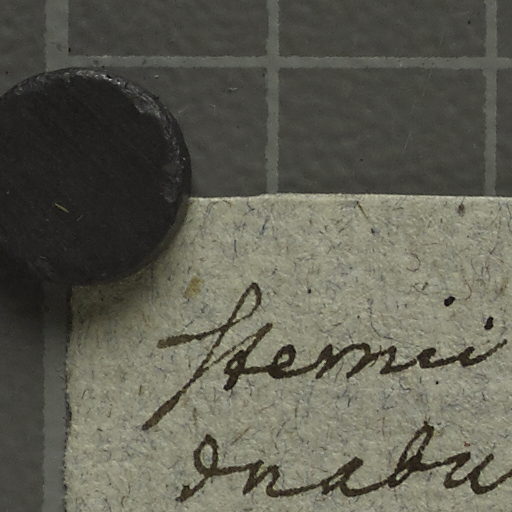 Hemii
Inabu